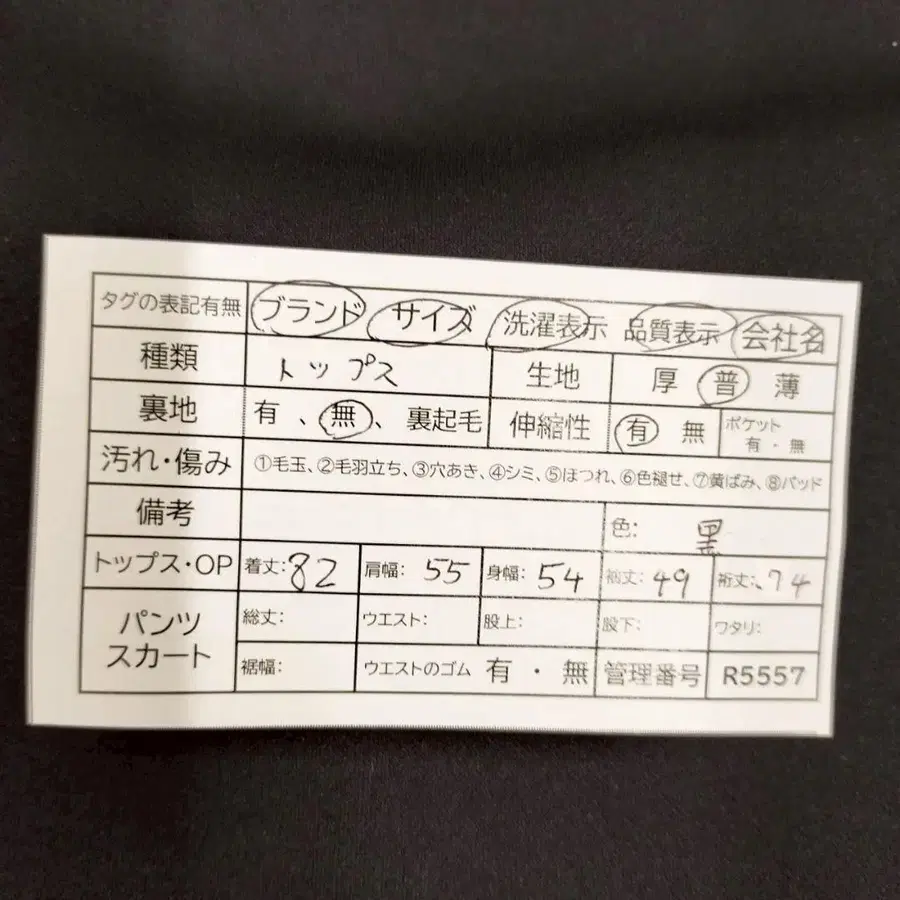 タグの表記有無 ブランド サイズ 洗濯表示 品質表示 会社名
種類 トップス 生地 厚 普 薄
裏地 有、無、裏起毛 伸縮性 有 無 ポケット 有・無
汚れ・傷み ①毛玉、②毛羽立ち、③穴あき、④シミ、⑤ほつれ、⑥色褪せ、⑦黄ばみ、⑧パッド
備考 色: 黒
トップス・OP 着丈:82 肩幅: 55 身幅: 54 裄丈: 49 裄丈: 74
パンツ スカート 総丈: ウエスト: 股上: 股下: ワタリ:
裾幅: ウエストのゴム 有・無 管理番号 R5557